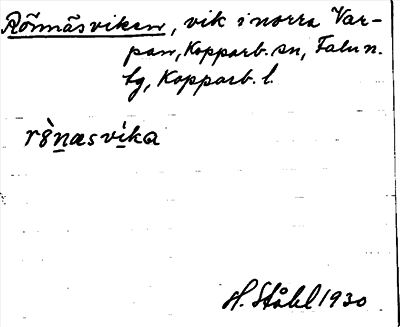 Rönnäsviken, vik i norra Var-
pan, Kopparb. sn, Falu n.
tg, Kopparb. l.
rö̀næsvíka
H. Ståhl 1930